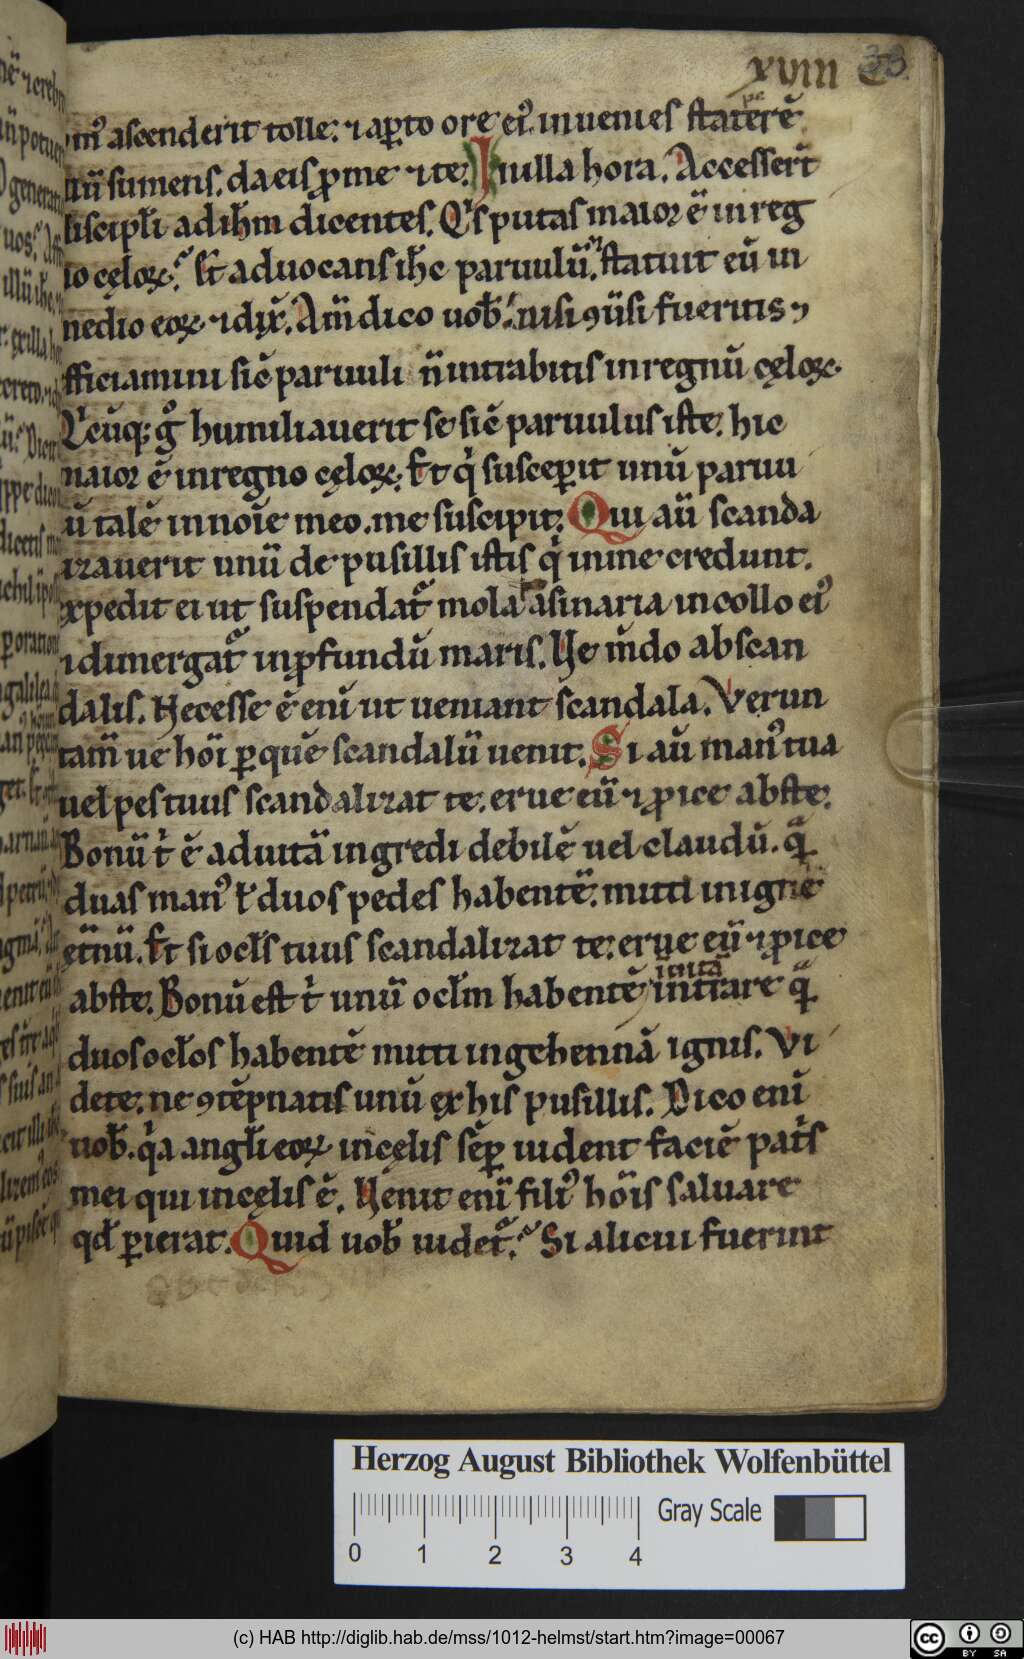 xviii C 38
im᷒ ascenderit tolle. ⁊ aꝑto ore ei᷒. inuenies staterē
illū sumens. da eis ꝓ me ⁊ te. In illa hora. Accesserт̄
discipłi ad ih̄m dicentes. Qͥs putas maior ē in reg
no cęloꝝ. Et aduocans ih̄c paruulū. statuit eū in
medio eoꝝ ⁊ dix̄. Am̄ dico uob̄. nisi ꝯūsi fueritis ⁊
efficiamini sic̄ paruuli n̄ intrabitis in regnū cęloꝝ.
Qͥcūq; gͦ humiliauerit se sic̄ paruulus iste. hic
maior ē in regno cęloꝝ. Et qͥ susceꝑit unū paruu
lū talē in noīe meo. me suscipit. Qui aū scanda
lizauerit unū de pusillis istis qͥ in me credunt.
expedit ei ut suspendat᷑ mola asinaria in collo ei᷒
⁊ dimergat᷑ in ꝓfundū maris. Ve m̄do ab scan
dalis. Necesse ē enī ut ueniant scandala. Verun
tam̄ ue hōi ꝑ quē scandalū uenit. Si aū man᷒ tua
uel pes tuus scandalizat te. erue eū ⁊ ꝓice abs te.
Bonū tͥ ē ad uitā ingredi debilē uel claudū. qͣ̄
duas man᷒ ł duos pedes habentē. mitti in ignē
et̄nū. Et si ocłs tuus scandalizat te. erue eū ⁊ ꝓice
abs te. Bonū est tͥ unū ocłm habentē in uitā intrare qͣ̄
duos ocłos habentē mitti in gehennā ignis. Vi
dete. ne ꝯtēpnatis unū ex his pusillis. Dico enī
uob̄. qͥa angłi eoꝝ in cęlis sēꝑ uident faciē pat̄s
mei qui in cęlis ē. Venit enī fili᷒ hōis saluare
qd̄ ꝑierat. Quid uob̄ uidet᷑. Si alicui fuerint
Herzog August Bibliothek Wolfenbüttel
Gray Scale
0 1 2 3 4
(c) HAB http://diglib.hab.de/mss/1012-helmst/start.htm?image=00067
cc BY SA